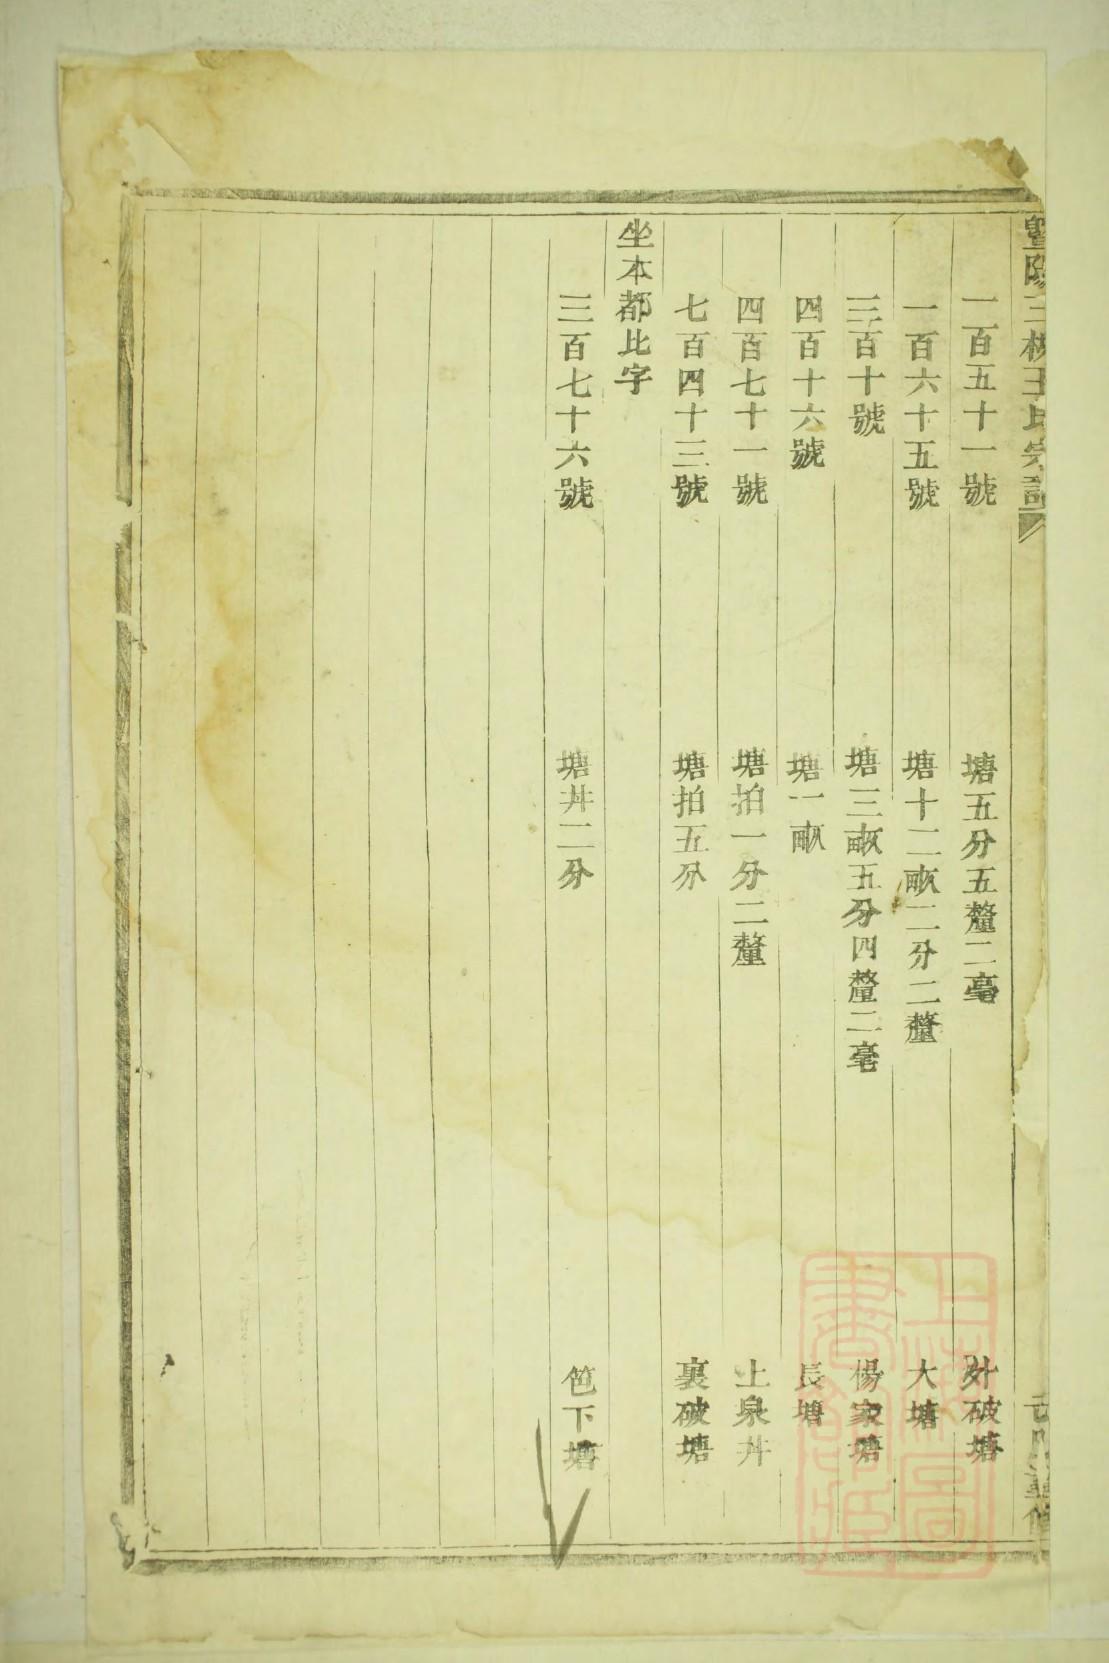 一百五十一號 塘五分五釐二毫 外破塘
一百六十五號 塘十二畝二分二釐 大塘
三百十號 塘三畝五分四釐二毫 楊家塘
四百十六號 塘一畝 長塘
四百七十一號 塘拍一分二釐 上泉井
七百四十三號 塘拍五分 裏破塘
坐本都比字
三百七十六號 塘井二分 笆下塘
上海圖書館藏